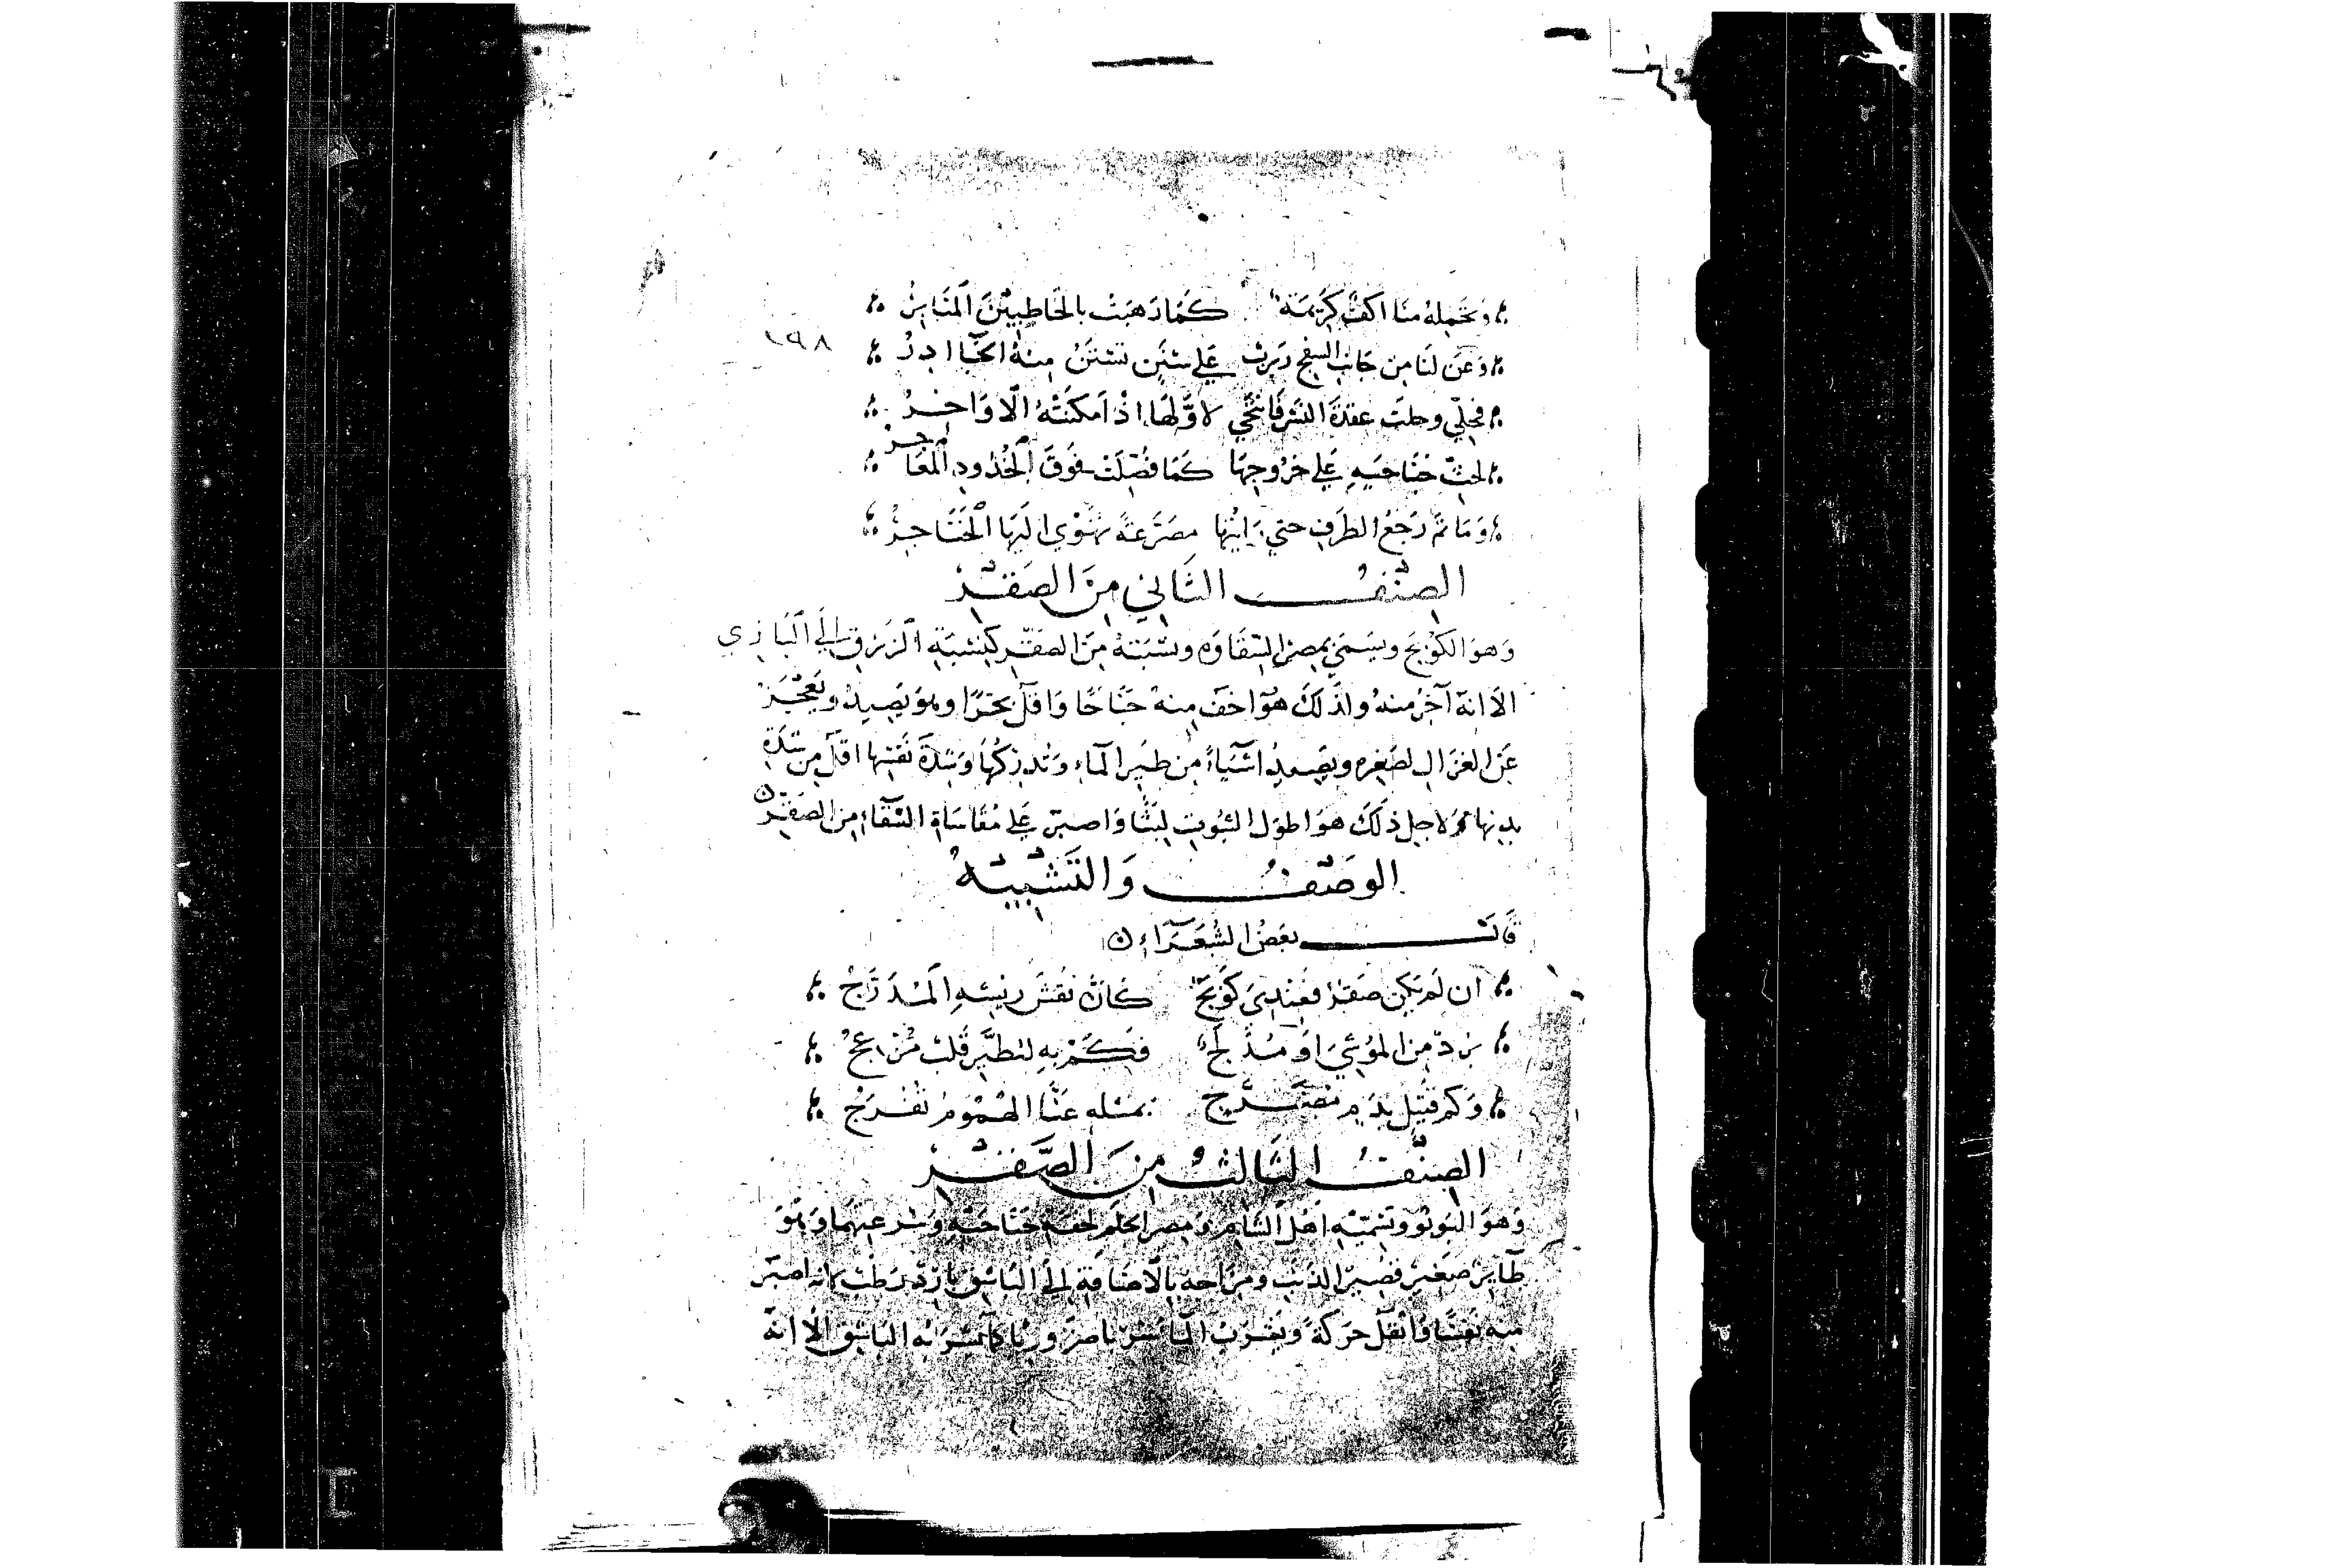 وَتَحمله منا اكف كَريمَة كَمَا ذهبَت بالخَاطِبِيْنَ المنَابِرُ
وَعَنَ لنَا مِن جَانبِ السفح ربرب عَلى سَنَن تستَنُ منهُ الجَا ادِرُ
فجلّي وحلت عقدة السَير فَانتحَي لاوَّلهَا اذْ اَمكنَتْهُ الاوَاخِرُ
جَنَاحَيهِ عَلى كَمَا فُصّلَتْ فَوقَ الخُدُودِ المغَاجرُ
١٩٨
وَمَا تم رَجَعُ الطَرف حتي رَايتها مصَرّعَة تهْوي اليَهَا الخَنَاجِرُ
الصِنْفُ الثَاني مِنَ الصَقْرِ
وَهوَ الكوْنج وَيسَمي بمصر السَقَاوَه ونسْبَتهُ مِنَ الصَقْرِ كنِسْبَة الزَرق إلَي البَازِي
الا انه آحَرّ منهُ ولذَلكَ هوَ اخَف مِنهُ جَنَاحًا وَاقلّ بخرًا وهوَ يَصيدُ ويَعْجَز
عَن الغزَال لصَغره ويصيدُ اشيَاءً مِن طيَر المَاءِ وشدة نفسها اقلّ مِن شدَة
بدنها ولاجل ذلَكَ هوَ اطوَل البُيوت لبثا وَاصبرَ عَلي مُقَاسَاة الشقَاء مِن الصَقْر
الوَصْفُ وَالتَشْبِيْهُ
قَالَ بعَضُ الشُعَرَاءِ
ان لَم يَكن صَقرٌ فعنْدِيَ كَوَنجُ كَانَ نَقشَ ريشِهِ المُدَرَّجُ
بُردٌ مِن الموُشيَ اوَ فَكَمْ بهِ لِلطَيَّرِ قَلبٌ مُزْعجُ
وَكم قتيل بدَمٍ مضَرَّجِ بمثلهِ عَنَّا الهُمُومُ تُفْرَجُ
الصِنْفُ الثَالثُ مِنَ الصَقْرِ
وَهوَ اليَويو وتسَميّه اَهْل الشَام وَمصر الجلَم لخفَة جَنَاحَيْهِ وَسُرعتهمَا وَهوَ
طَآير صَغير قصَير الذنَب ومزَاجه بالاضَافة إلي البَاشق بَارد رَطب لانه اصبَر
منه نفسًا وَاثقل حَركة ويَشرَبُ المَاء كمَا يَشْرَبُه البَاشق الا انهُ